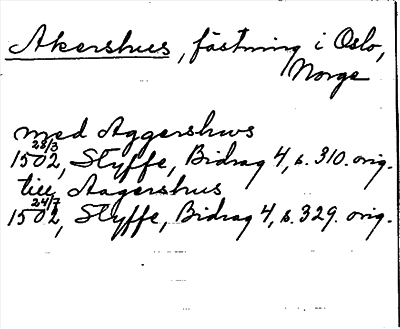 Akershus, fästning i Oslo,
Norge
med Aggershws
1502 28/3, Styffe, Bidrag 4, s. 310. orig.
till Aagershus
1502 24/7, Styffe, Bidrag 4, s. 329. orig.